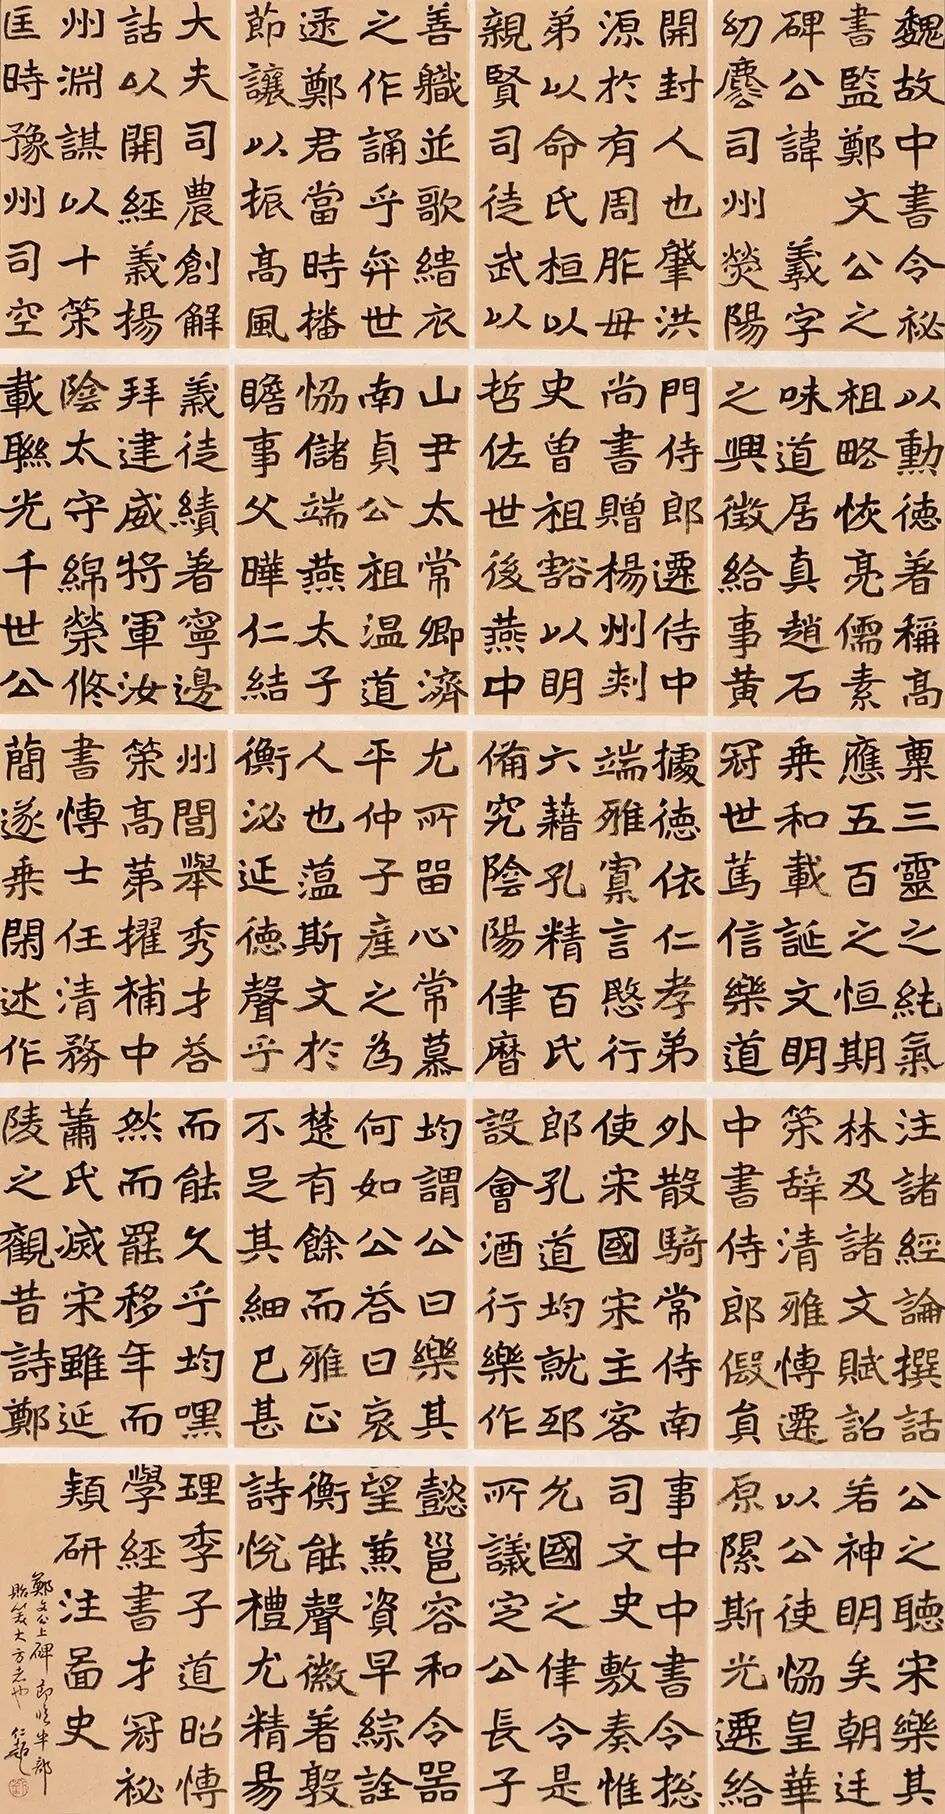 魏故中書令祕
書監鄭文公之
碑公諱 羲字
幼麐司州熒陽
開封人也肇洪
源於有周胙母
弟以命氏桓以
親賢司徒武以
善軄並歌緇衣
之作誦乎弈世
逯鄭君當時播
節讓以振高風
大夫司農創解
詁以開經義揚
州淵謀以十策
匡時豫州司空
以勳徳著稱高
祖略恢亮儒素
味道居真趙石
之興徵給事黃
門侍郎遷侍中
尚書贈楊州刾
史曾祖豁以明
哲佐世後燕中
山尹太常卿濟
南貞公祖温道
協儲端燕太子
瞻事父曄仁結
義徒績著寧邊
拜建威將軍汝
陰太守綿榮修
載聯光千世公
稟三靈之純氣
應五百之恒期
乗和載誕文明
冠世篤信樂道
據徳依仁孝弟
端雅寡言愍行
六藉孔精百氏
備究陰陽律曆
尤所留心常慕
平仲子産之為
人也藴斯文於
衡泌延徳聲乎
州閭舉秀才荅
策高第擢補中
書博士任清務
簡遂乗閑述作
注諸經論撰話
林及諸文賦詔
策辭清雅博遷
中書侍郎假員
外散騎常侍南
使宋國宋主客
郎孔道均就邳
設會酒行樂作
均謂公曰樂其
何如公荅曰哀
楚有餘而雅正
不足其細已甚
而能久乎均嘿
然而罷移年而
蕭氏滅宋雖延
陵之觀昔詩鄭
公之聽宋樂其
若神明矣朝廷
以公使協皇華
原隰斯光遷給
事中中書令揔
司文史敷奏惟
允國之律令是
所議定公長子
懿邕容和令器
望兼資早綜詮
衡能聲徽著敦
詩悅禮尤精易
理季子道昭博
學經書才冠祕
頴研注啚史
鄭文公上碑 臨半部
貽笑大方者也